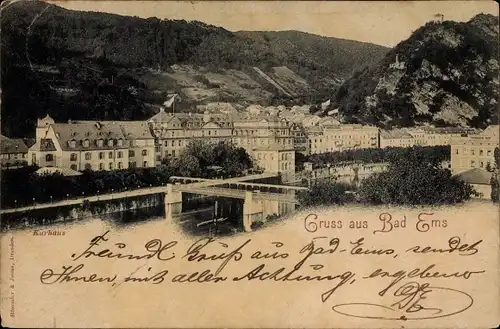 Gruss aus Bad Ems
Kurhaus
Freundl. Gruß aus Bad-Ems, sendet
Ihnen, mit aller Achtung, ergebenst
Stengel & Co., Dresden.